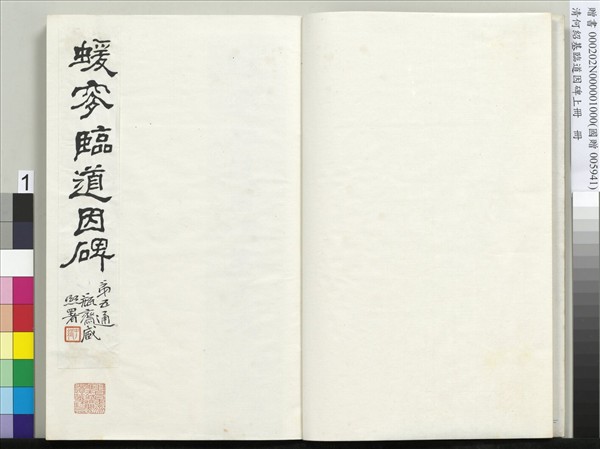 贈書 000202N000001000(國贈 005941)
清何紹基臨道因碑上冊 冊
蝯叜臨道因碑
第五通
瓶齋藏
熙署
1